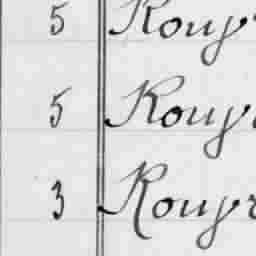 5 Rouyr
5 Rouyr
3 Rouyr